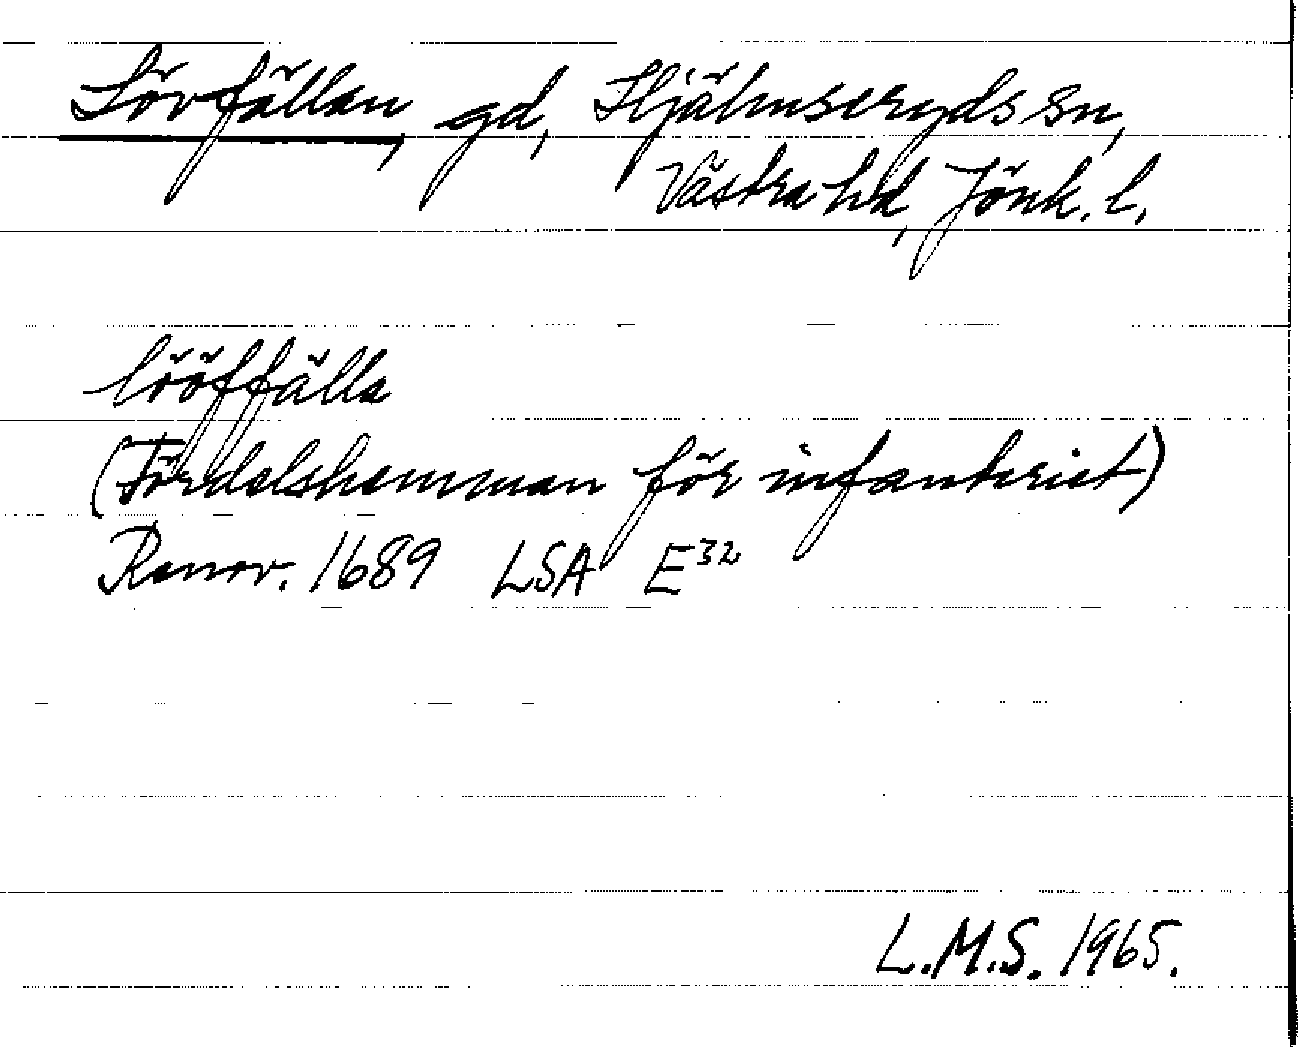 Lövfällan, gd, Hjälmseryds sn,
Västra hd, Jönk. l.
lööffälla
(Fördelshemman för infanteriet)
Renov. 1689 LSA E32
L.M.S. 1965.